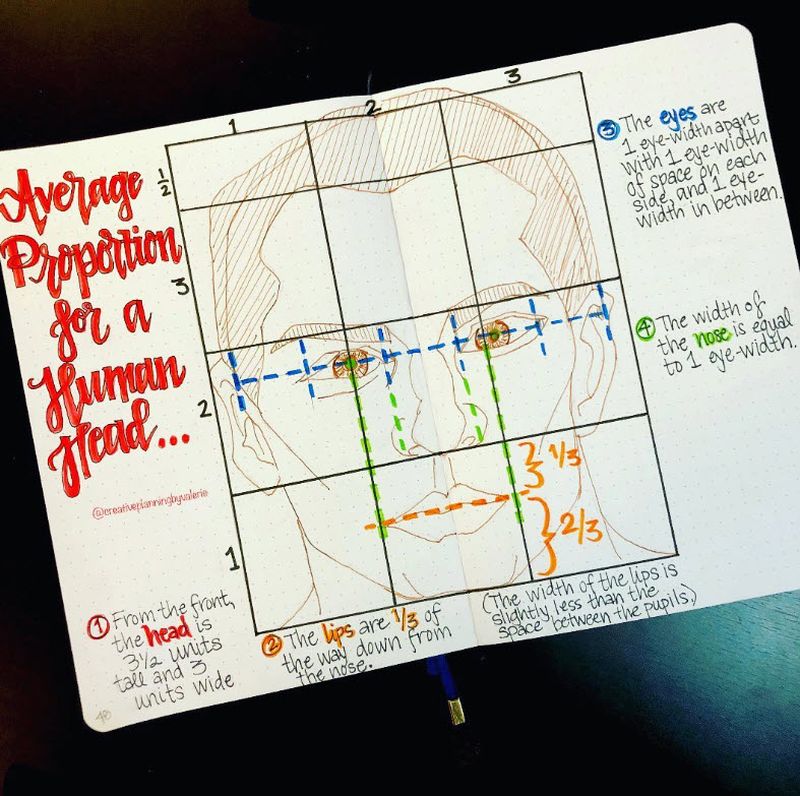 Average
Proportion
for a
Human
Head...
@creativeplanningbyvalerie
1
2
3
1/2
3
2
1
③ The eyes are
1 eye-width apart
with 1 eye-width
of space on each
side, and 1 eye-
width in between.
④ The width of
the nose is equal
to 1 eye-width.
1/3
2/3
① From the front,
the head is
3 1/2 units
tall and 3
units wide
② The lips are 1/3 of
the way down from
the nose.
(The width of the lips is
slightly less than the
space between the pupils)